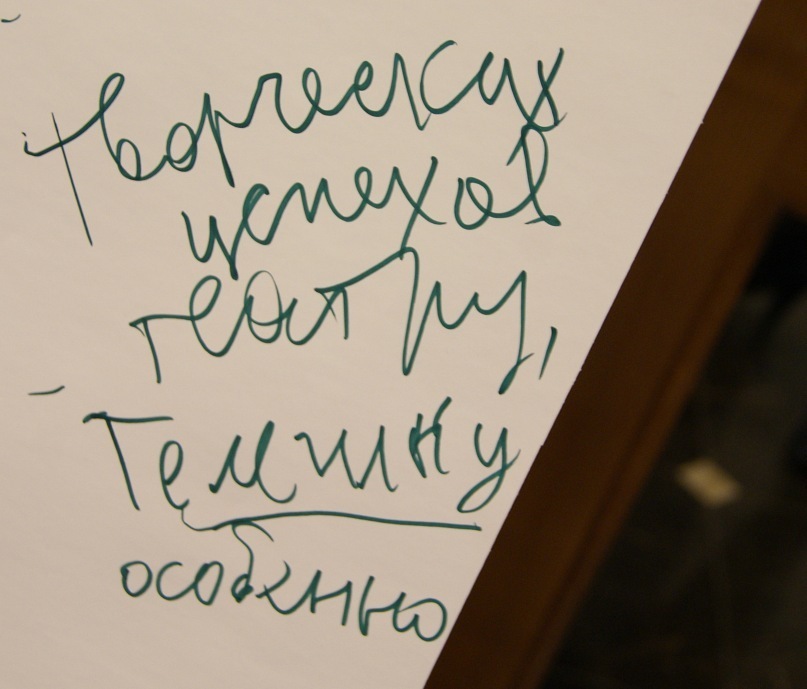 творческих
успехов
театру,
Темшну
особенно